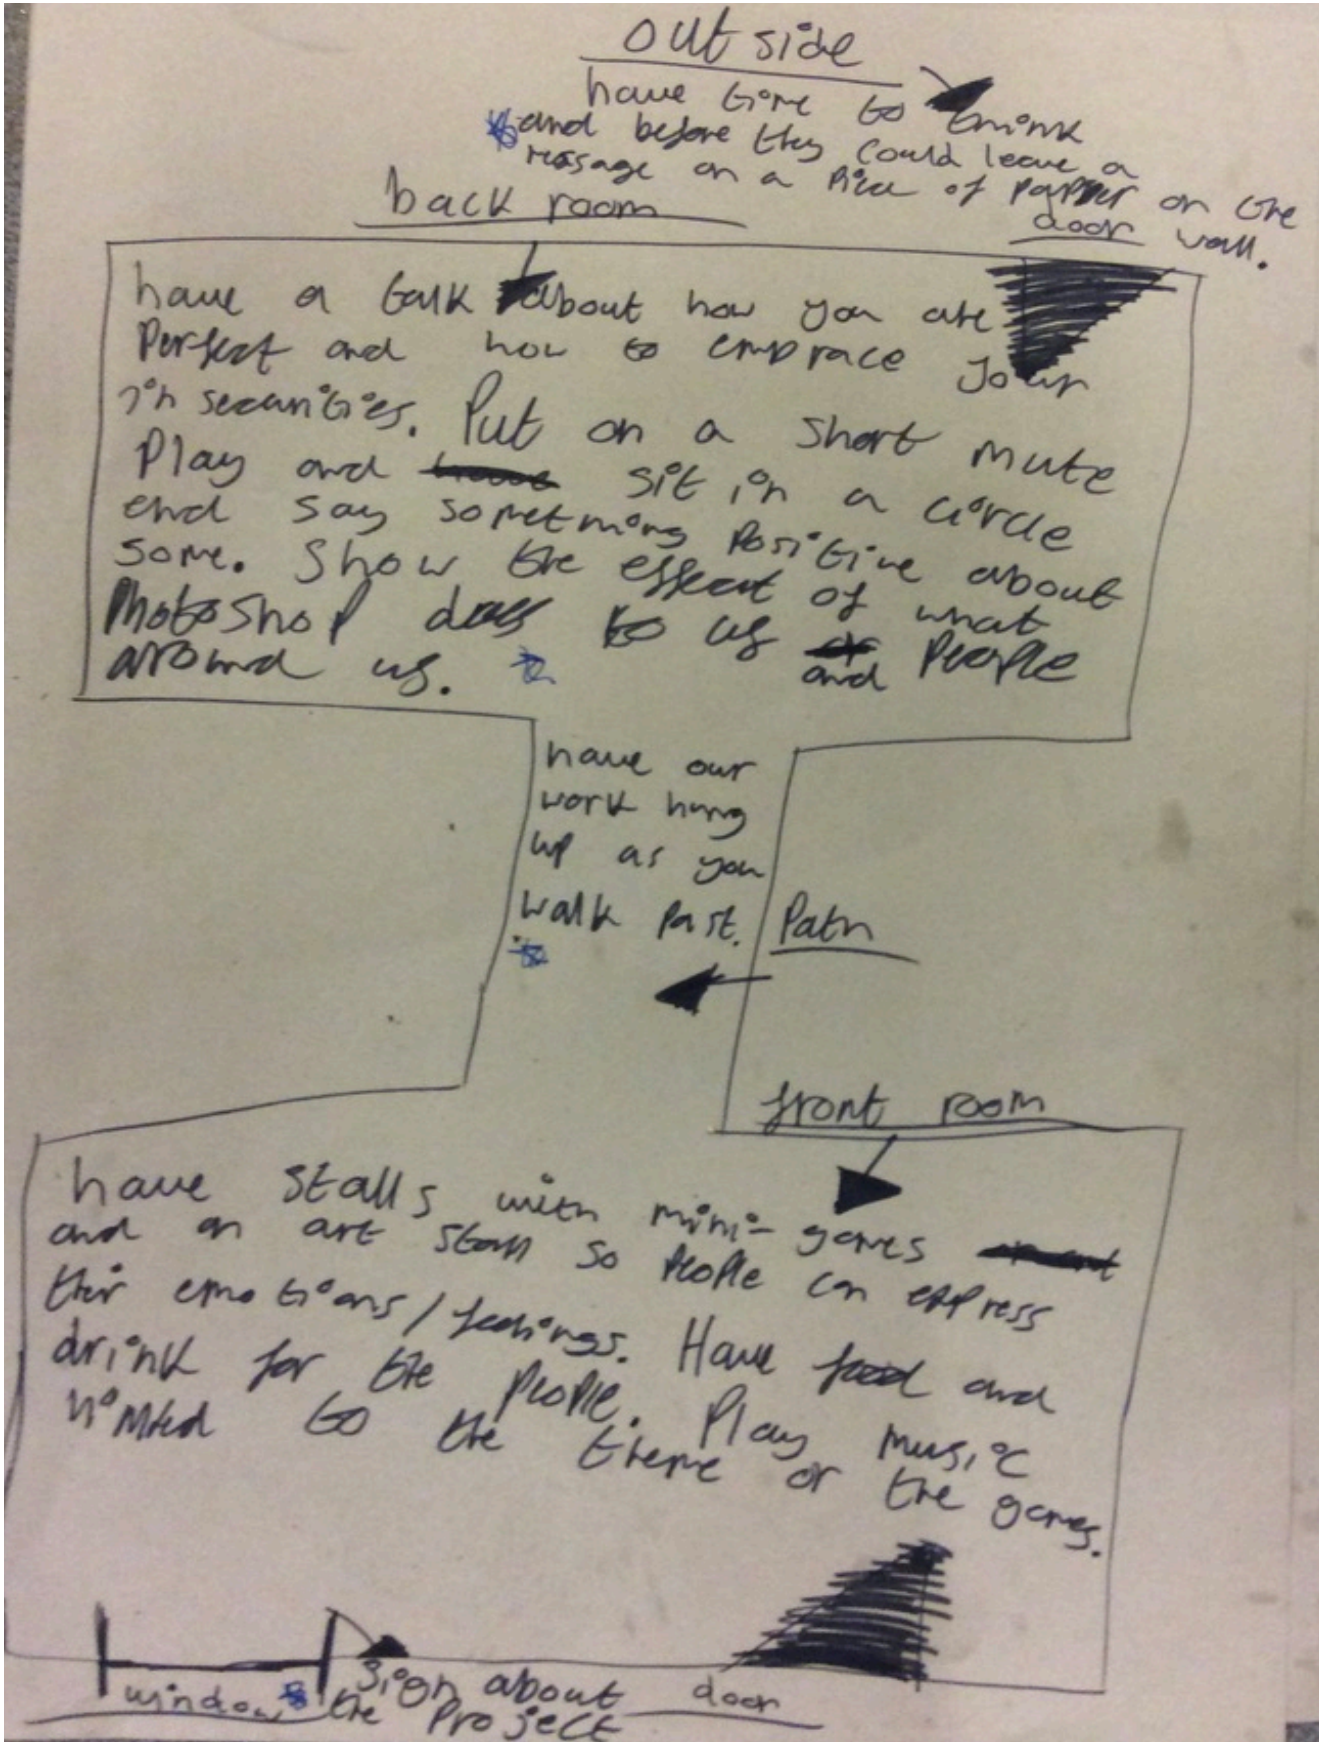 outside
have time to think
and before they could leave a
message on a piece of papper on the
wall.
back room
door
have a talk about how you are
perfect and how to embrace your
insecurities. Put on a short mute
play and sit in a circle
and say something positive about
some. Show the effect of what
photoshop does to us and people
around us.
have our
work hung
up as you
walk past.
Path
front room
have stalls with mini-games
and an art stall so people can express
their emotions/feelings. Have food and
drink for the people. Play music
to the theme or the games.
window
sign about
the project
door